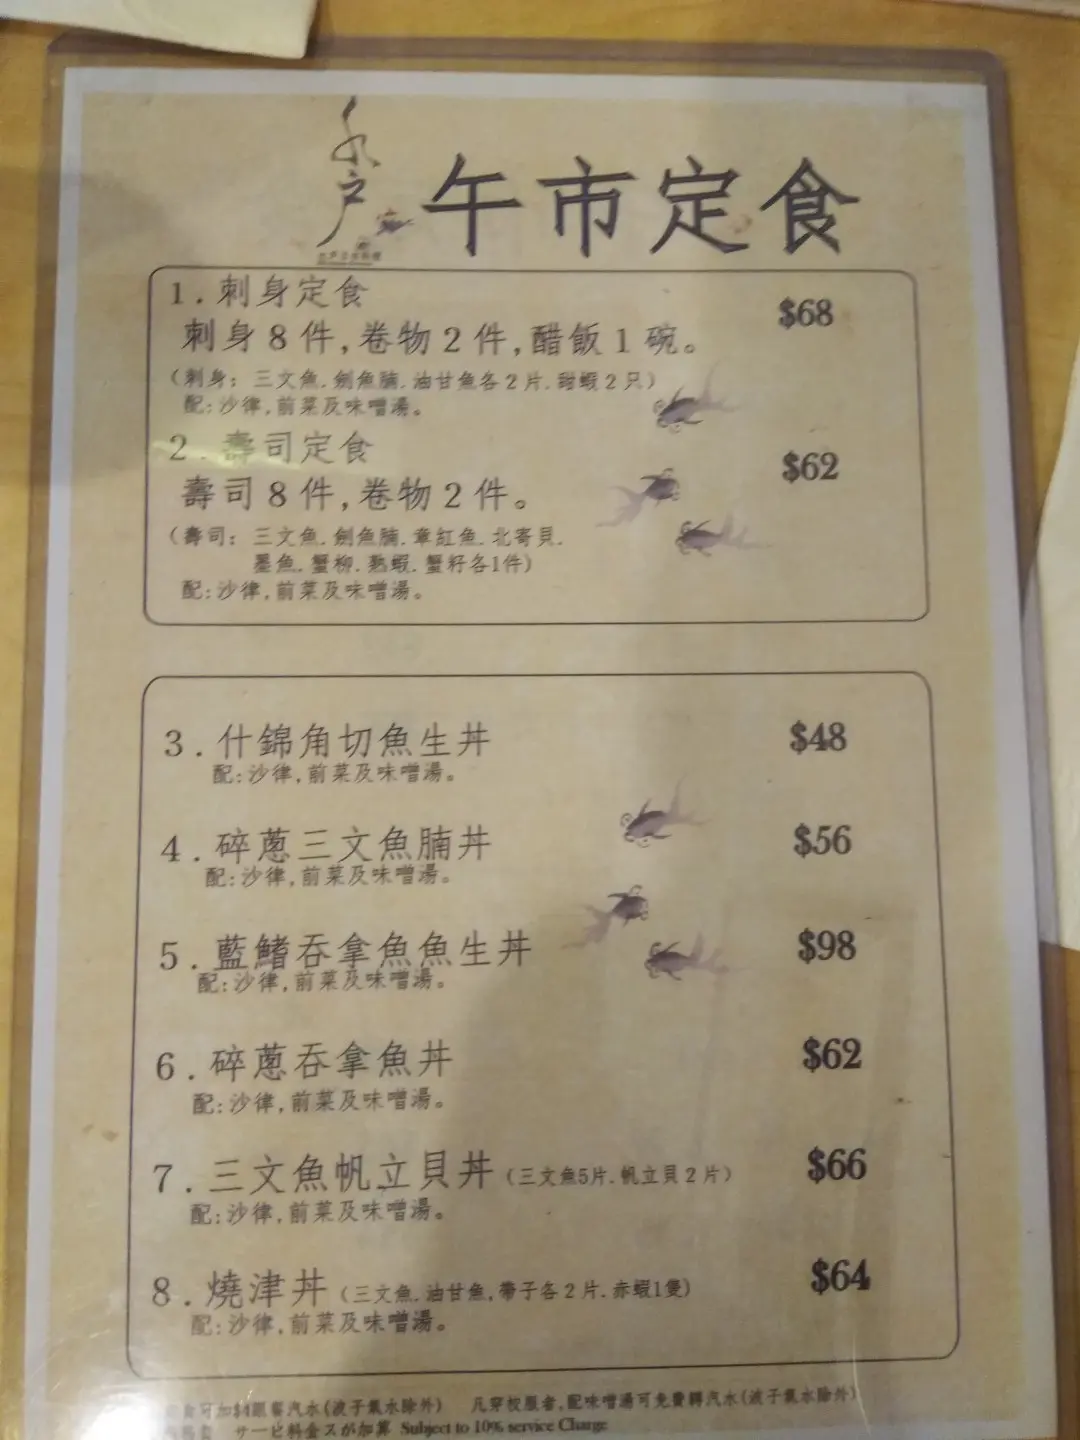 水戶
午市定食
1.刺身定食 $68
刺身8件,卷物2件,醋飯1碗。
(刺身: 三文魚.劍魚腩.油甘魚各2片.甜蝦2只)
配:沙律,前菜及味噌湯。
2.壽司定食 $62
壽司8件,卷物2件。
(壽司: 三文魚.劍魚腩.章紅魚.北寄貝.
墨魚.蟹柳.熟蝦.蟹籽各1件)
配:沙律,前菜及味噌湯。
3.什錦角切魚生丼 $48
配:沙律,前菜及味噌湯。
4.碎蔥三文魚腩丼 $56
配:沙律,前菜及味噌湯。
5.藍鰭吞拿魚魚生丼 $98
配:沙律,前菜及味噌湯。
6.碎蔥吞拿魚丼 $62
配:沙律,前菜及味噌湯。
7.三文魚帆立貝丼(三文魚5片.帆立貝2片) $66
配:沙律,前菜及味噌湯。
8.燒津丼(三文魚.油甘魚,帶子各2片.赤蝦1隻) $64
配:沙律,前菜及味噌湯。
可加$4跟餐汽水(波子氣水除外) 凡穿校服者,配味噌湯可免費轉汽水(波子氣水除外)
サービ料金スが加算 Subject to 10% service Charge